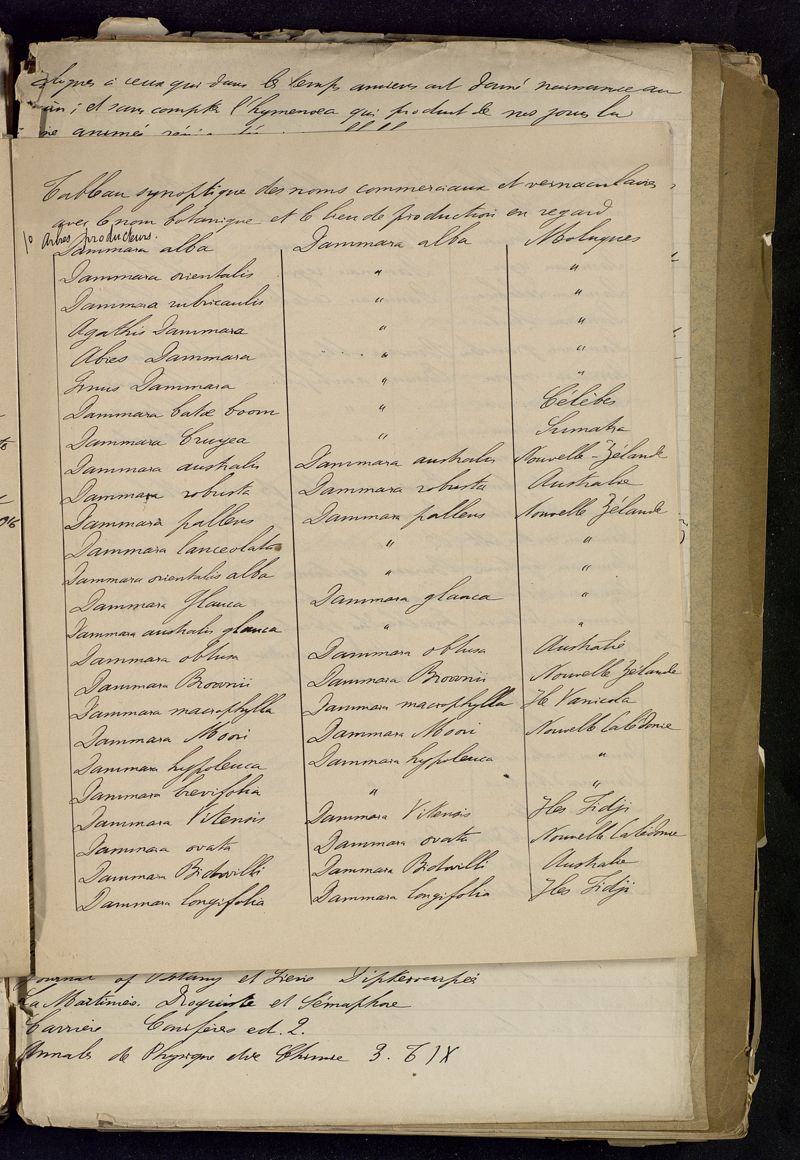 à ceux qui dans le temps anciens ont donné naissance au
; et sans compter l'hymenoea qui produit de nos jours la
animée
Tableau synoptique des noms commerciaux et vernaculaires,
avec le nom botanique et le lieu de production en regard
1o Arbres producteurs.
Dammara alba Dammara alba Moluques
Dammara orientalis " "
Dammara rubricaulis " "
Agathis Dammara " "
Abies Dammara " "
Pinus Dammara " "
Dammara batœ boom " Célèbes
Dammara Cruyea " Sumatra
Dammara australis Dammara australis Nouvelle-Zélande
Dammara robusta Dammara robusta Australie
Dammara pallens Dammara pallens Nouvelle Zélande
Dammara lanceolata " "
Dammara orientalis alba " "
Dammara Glauca Dammara glauca "
Dammara australis glauca " "
Dammara obtusa Dammara obtusa Australie
Dammara Brownii Dammara Brownii Nouvelle Zélande
Dammara macrophylla Dammara macrophylla Ile Vanicola
Dammara Moori Dammara Moori Nouvelle Calédonie
Dammara hypoleuca Dammara hypoleuca "
Dammara brevifolia " "
Dammara Vitensis Dammara Vitensis Iles Fidji
Dammara ovata Dammara ovata Nouvelle Calédonie
Dammara Bidwilli Dammara Bidwilli Australie
Dammara longifolia Dammara longifolia Iles Fidji
Journal of Botany et Diptérocarpés
La Martinière. Droguiste et Sémaphore
Carrière Conifères ed. 2.
Annales de Physique et de Chimie 3. T IX